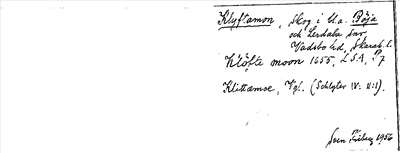 Klyftamon, Skog i bl.a. Böja
och Lerdala snr,
Vadsbo hd, Skarab. l.
Klöfte moon 1655, LSA, P7
Klittamoe, Vgl. (Schlyter IV: II:1).
Sven Friberg 1956